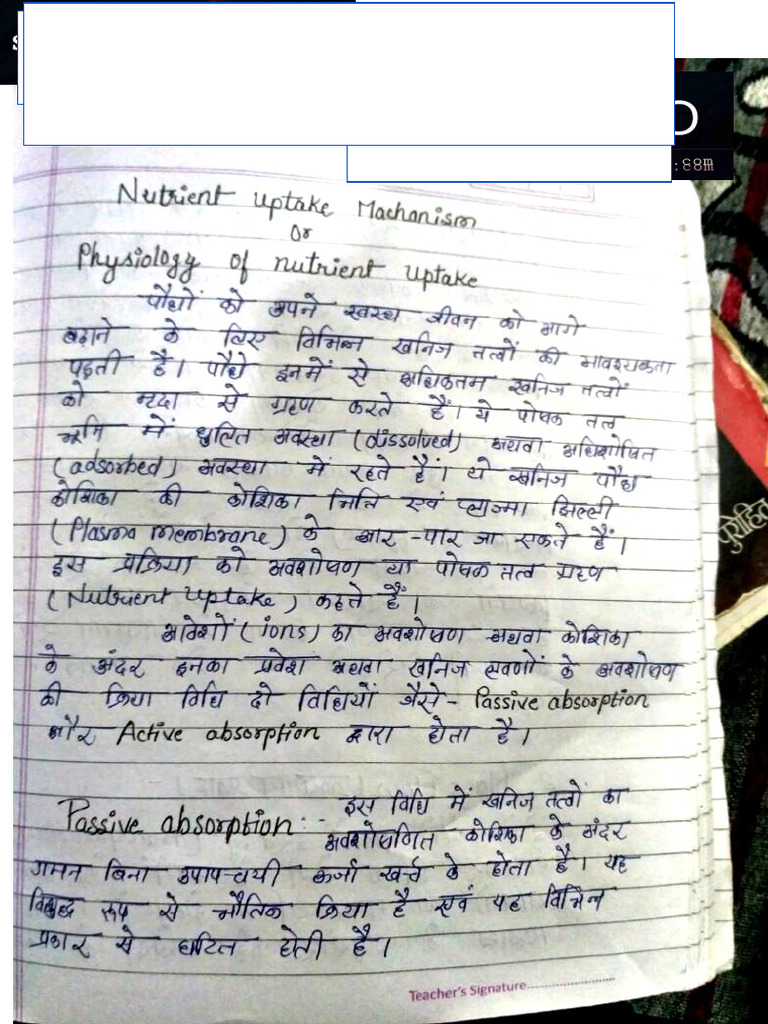 Nutrient Uptake Machanism
Or
Physiology of nutrient uptake
पौधों को अपने स्वस्थ जीवन को आगे
बढ़ाने के लिए विभिन्न खनिज तत्वों की आवश्यकता
पड़ती है। पौधे इनमें से अधिकतम खनिज तत्वों
को मृदा से ग्रहण करते हैं। ये पोषक तत्व
भूमि में घुलित अवस्था (dissolved) अथवा अधिशोषित
(adsorbed) अवस्था में रहते हैं। ये खनिज पौधे
कोशिका की कोशिका भित्ति एवं प्लाज्मा झिल्ली
(Plasma membrane) के आर-पार जा सकते हैं।
इस प्रक्रिया को अवशोषण या पोषक तत्व ग्रहण
(Nutrient Uptake) कहते हैं।
आवेशों (ions) का अवशोषण अथवा कोशिका
के अंदर इनका प्रवेश अथवा खनिज लवणों के अवशोषण
की क्रिया विधि दो विधियों जैसे - Passive absorption
और Active absorption द्वारा होता है।
Passive absorption :- इस विधि में खनिज तत्वों का
कोशिका के अंदर
गमन बिना उपापचयी ऊर्जा खर्च के होता है। यह
रूप से भौतिक क्रिया है एवं यह विभिन्न
प्रकार से घटित होती है।
Teacher's Signature
पुरोहित
:88m